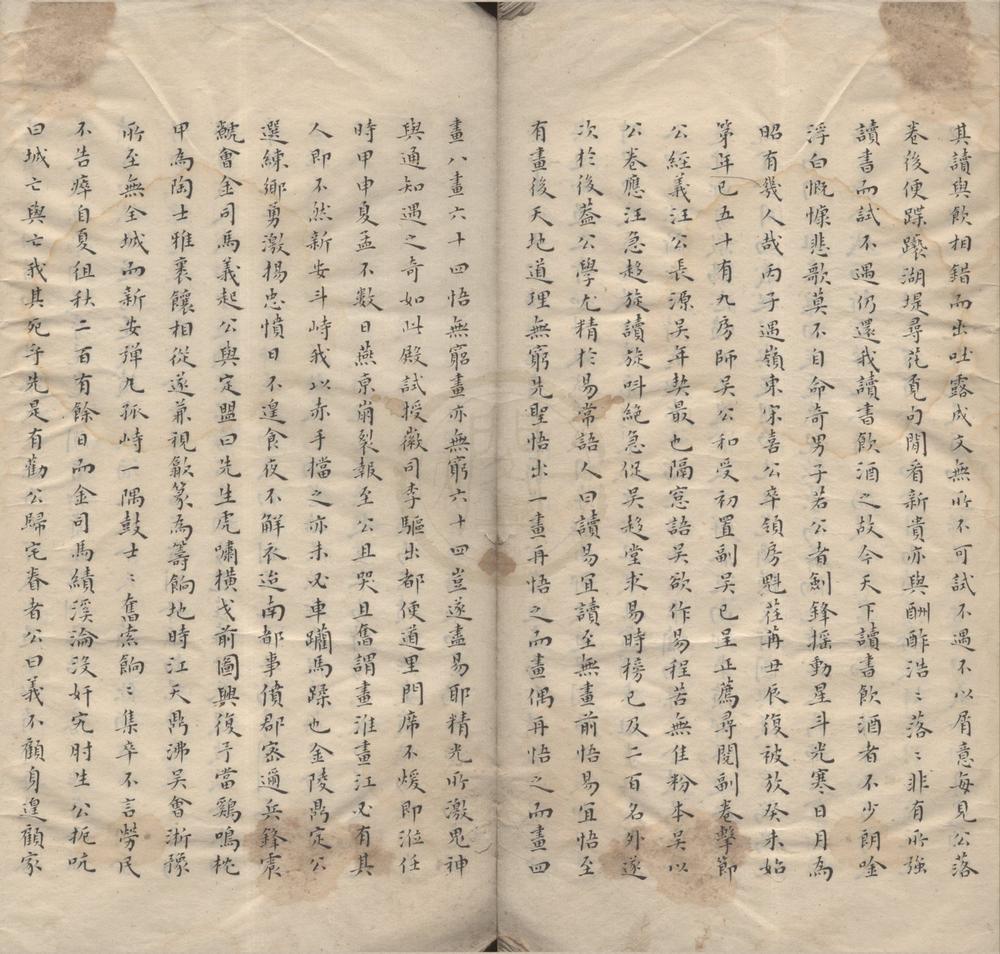 其讀與飲相錯而出吐露成文無所不可試不遇不以屑意每見公落
卷後便蹀躞湖堤尋花覓句閒看新貴亦與酬酢浩〻落〻非有所強
讀書而試不遇仍還我讀書飲酒之故今天下讀書飲酒者不少朗唫
浮白慨慷悲歌莫不自命奇男子若公者劍鋒搖動星斗光寒日月為
昭有幾人哉丙子遇嶺東宋喜公卒領房魁荏苒丑辰復被放癸未始
第年已五十有九房師吳公和受初置副吳已呈正薦尋閱副卷擊節
公經義汪公長源吳年契最也隔窓語吳欲作易程苦無佳粉本吳以
公卷應汪急趍旋讀旋呌絕急促吳趍堂求易時榜已及二百名外遂
次於後葢公學尤精於易常語人曰讀易宜讀至無畫前悟易宜悟至
有畫後天地道理無窮先聖悟出一畫再悟之而畫偶再悟之而畫四
畫八畫六十四悟無窮畫亦無窮六十四豈遂盡易耶精光所激鬼神
與通知遇之奇如此殿試授徽司李驅出都便道里門席不煖即涖任
時甲申夏孟不數日燕京崩裂報至公且哭且奮謂畫淮畫江必有其
人即不然新安斗峙我以赤手擋之亦未必車躪馬蹂也金陵鼎定公
選練鄉勇激揚忠憤日不遑食夜不解衣迨南都事僨郡寄逼兵鋒震
虩會金司馬義起公與定盟曰先生虎嘯橫戈前圖興復予當鷄鳴枕
甲為陶士雅裹饟相從遂兼視歙篆為籌餉地時江天鼎沸吳會淅豫
所至無全城而新安彈丸孤峙一隅鼓士〻奮索餉〻集卒不言勞民
不告瘁自夏徂秋二百有餘日而金司馬績溪淪沒奸宄肘生公扼吭
曰城亡與亡我其宛乎先是有勸公歸宅眷者公曰義不顧身遑顧家